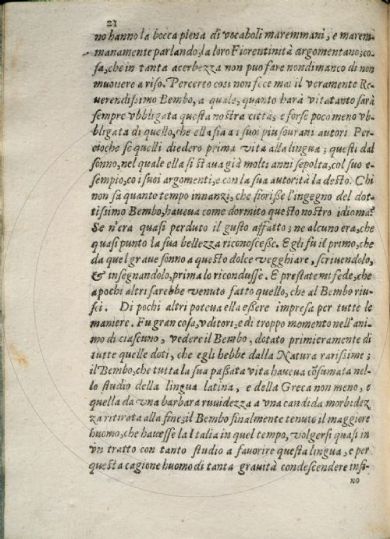 22
no hanno la bocca piena di vocaboli maremmani, e marem-
manamente parlando, la loro Fiorentinità argomentano; co-
sa, che in tanta acerbezza non puo fare nondimanco di non
muouere a riso. Percerto cosi non fece mai il veramente Re-
uerendissimo Bembo, a quale, quanto harà vita, tanto sarà
sempre vbbligata questa nostra città; e forse poco meno vb-
bligata di quello, che ella sia a i suoi piu sourani autori Per-
cioche se quelli diedero prima vita alla lingua; questi dal
sonno, nel quale ella si staua già molti anni sepolta, col suo e-
sempio, co i suoi argomenti, e con la sua autorità la destò. Chi
non sa quanto tempo innanzi, che fiorisse l'ingegno del dot
tissimo Bembo, haueua come dormito questo nostro idioma?
Se n'era quasi perduto il gusto affatto; ne alcuno era, che
quasi punto la sua bellezza riconoscesse. Egli fu il primo, che
da quel graue sonno a questo dolce vegghiare, scriuendolo,
& insegnandolo, prima lo ricondusse. E prestatemi fede, che
a pochi altri sarebbe venuto fatto quello, che al Bembo riu-
scì. Di pochi altri poteua ella essere impresa per tutte le
maniere. Fu gran cosa, vditori, e di troppo momento nell'ani-
mo di ciascuno, vedere il Bembo, dotato primieramente di
tutte quelle doti, che egli hebbe dalla Natura rarissime;
il Bembo, che tutta la sua passata vita haueua cõsumata nel-
lo studio della lingua latina, e della Greca non meno, e
quella da vna barbara ruuidezza a vna candida morbidez
za ritirata alla fine; il Bembo finalmente tenuto il maggiore
huomo, che hauesse la Italia in quel tempo, volgersi quasi in
vn tratto con tanto studio a fauorire questa lingua, e per
questa cagione huomo di tanta grauità condescendere insi-
no